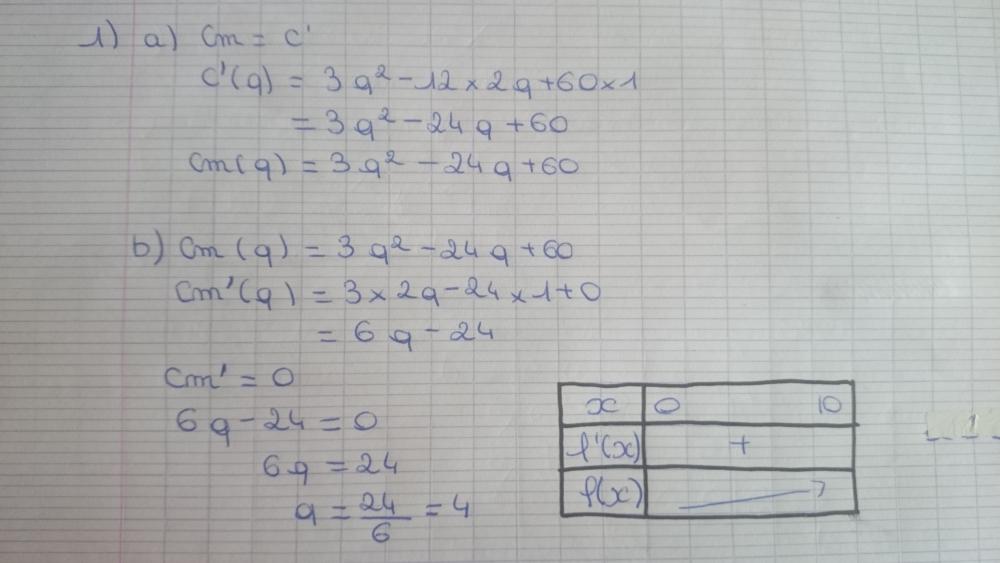 1) a) Cm = C'
C'(q) = 3q² - 12 × 2q + 60 × 1
= 3q² - 24q + 60
Cm(q) = 3q² - 24q + 60
b) Cm(q) = 3q² - 24q + 60
Cm'(q) = 3 × 2q - 24 × 1 + 0
= 6q - 24
Cm' = 0
6q - 24 = 0
6q = 24
q = 24/6 = 4
x 0 10
f'(x) +
f(x)